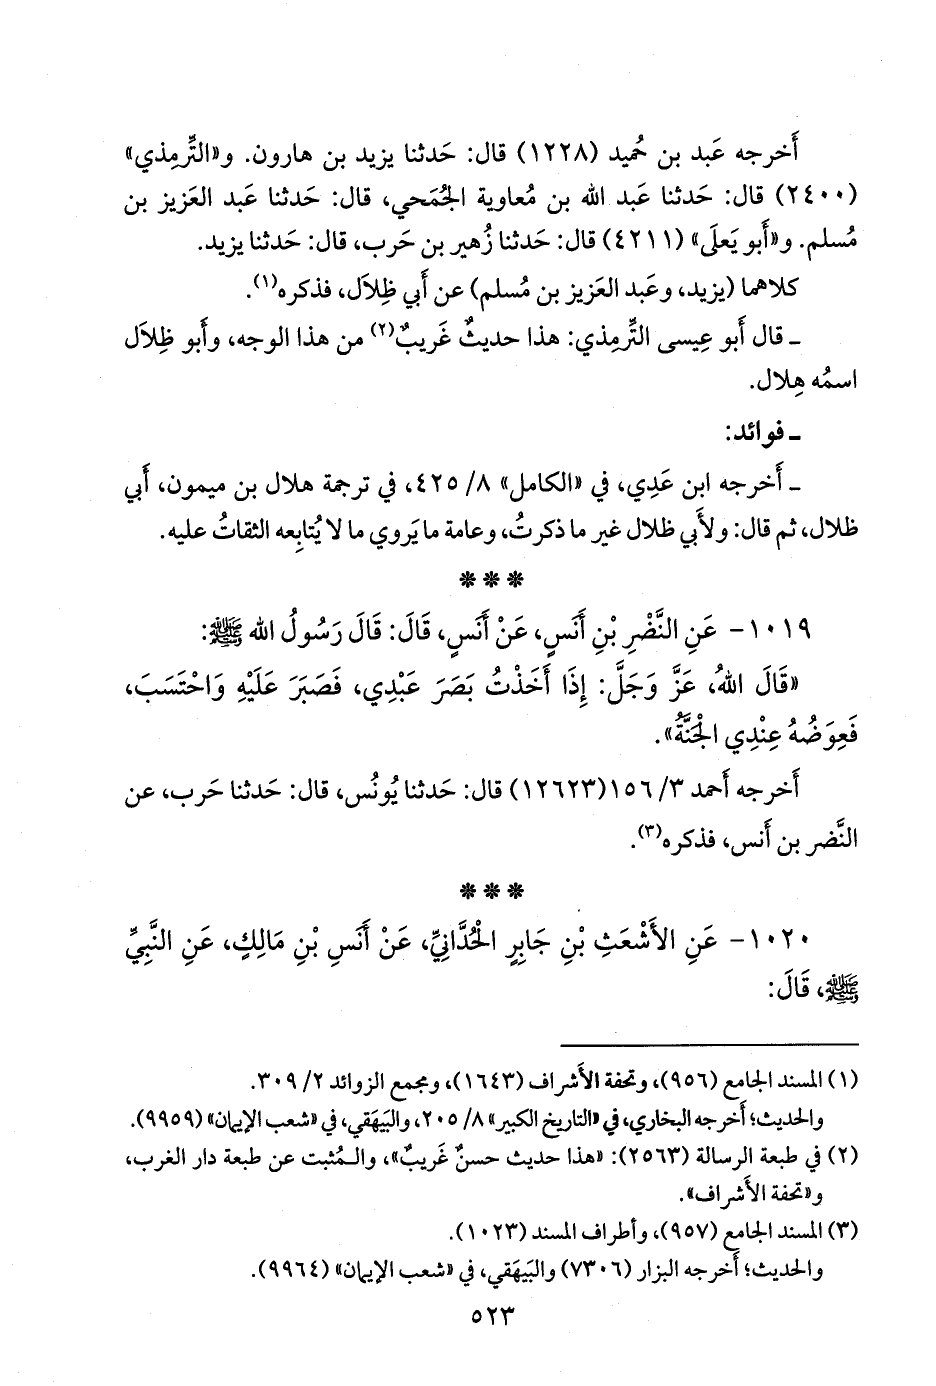 أَخرجه عَبد بن حُميد (١٢٢٨) قال: حَدثنا يزيد بن هارون. و«التِّرمِذي»
(٢٤٠٠) قال: حَدثنا عَبد الله بن مُعاوية الجُمَحي، قال: حَدثنا عَبد العَزيز بن
مُسلم. و«أَبو يَعلَى» (٤٢١١) قال: حَدثنا زُهير بن حَرب، قال: حَدثنا يزيد.
كلاهما (يزيد، وعَبد العَزيز بن مُسلم) عن أَبي ظِلاَل، فذكره(١).
ـ قال أَبو عِيسى التِّرمِذي: هذا حديثٌ غَريبٌ(٢) من هذا الوجه، وأَبو ظِلاَل
اسمُه هِلال.
ـ فوائد:
ـ أَخرجه ابن عَدِي، في «الكامل» ٨/ ٤٢٥، في ترجمة هلال بن ميمون، أَبي
ظلال، ثم قال: ولأَبي ظلال غير ما ذكرتُ، وعامة ما يَروي ما لا يُتابِعه الثقاتُ عليه.
* * *
١٠١٩- عَنِ النَّضْرِ بْنِ أَنَسٍ، عَنْ أَنَسٍ، قَالَ: قَالَ رَسُولُ الله ﷺ:
«قَالَ اللهُ، عَزَّ وَجَلَّ: إِذَا أَخَذْتُ بَصَرَ عَبْدِي، فَصَبَرَ عَلَيْهِ وَاحْتَسَبَ،
فَعِوَضُهُ عِنْدِي الْجَنَّةُ».
أَخرجه أَحمد ٣/ ١٥٦(١٢٦٢٣) قال: حَدثنا يُونُس، قال: حَدثنا حَرب، عن
النَّضر بن أَنس، فذكره(٣).
* * *
١٠٢٠- عَنِ الأَشْعَثِ بْنِ جَابِرٍ الْحُدَّانِيِّ، عَنْ أَنَسِ بْنِ مَالِكٍ، عَنِ النَّبِيِّ
ﷺ، قَالَ:
(١) المسند الجامع (٩٥٦)، وتحفة الأَشراف (١٦٤٣)، ومجمع الزوائد ٢/ ٣٠٩.
والحديث؛ أَخرجه البخاري، في «التاريخ الكبير» ٨/ ٢٠٥، والبَيهَقي، في «شعب الإيمان» (٩٩٥٩).
(٢) في طبعة الرسالة (٢٥٦٣): «هذا حديث حسنٌ غَريبٌ»، والمُثبت عن طبعة دار الغرب،
و«تحفة الأَشراف».
(٣) المسند الجامع (٩٥٧)، وأطراف المسند (١٠٢٣).
والحديث؛ أَخرجه البزار (٧٣٠٦) والبَيهَقي، في «شعب الإيمان» (٩٩٦٤).
٥٢٣